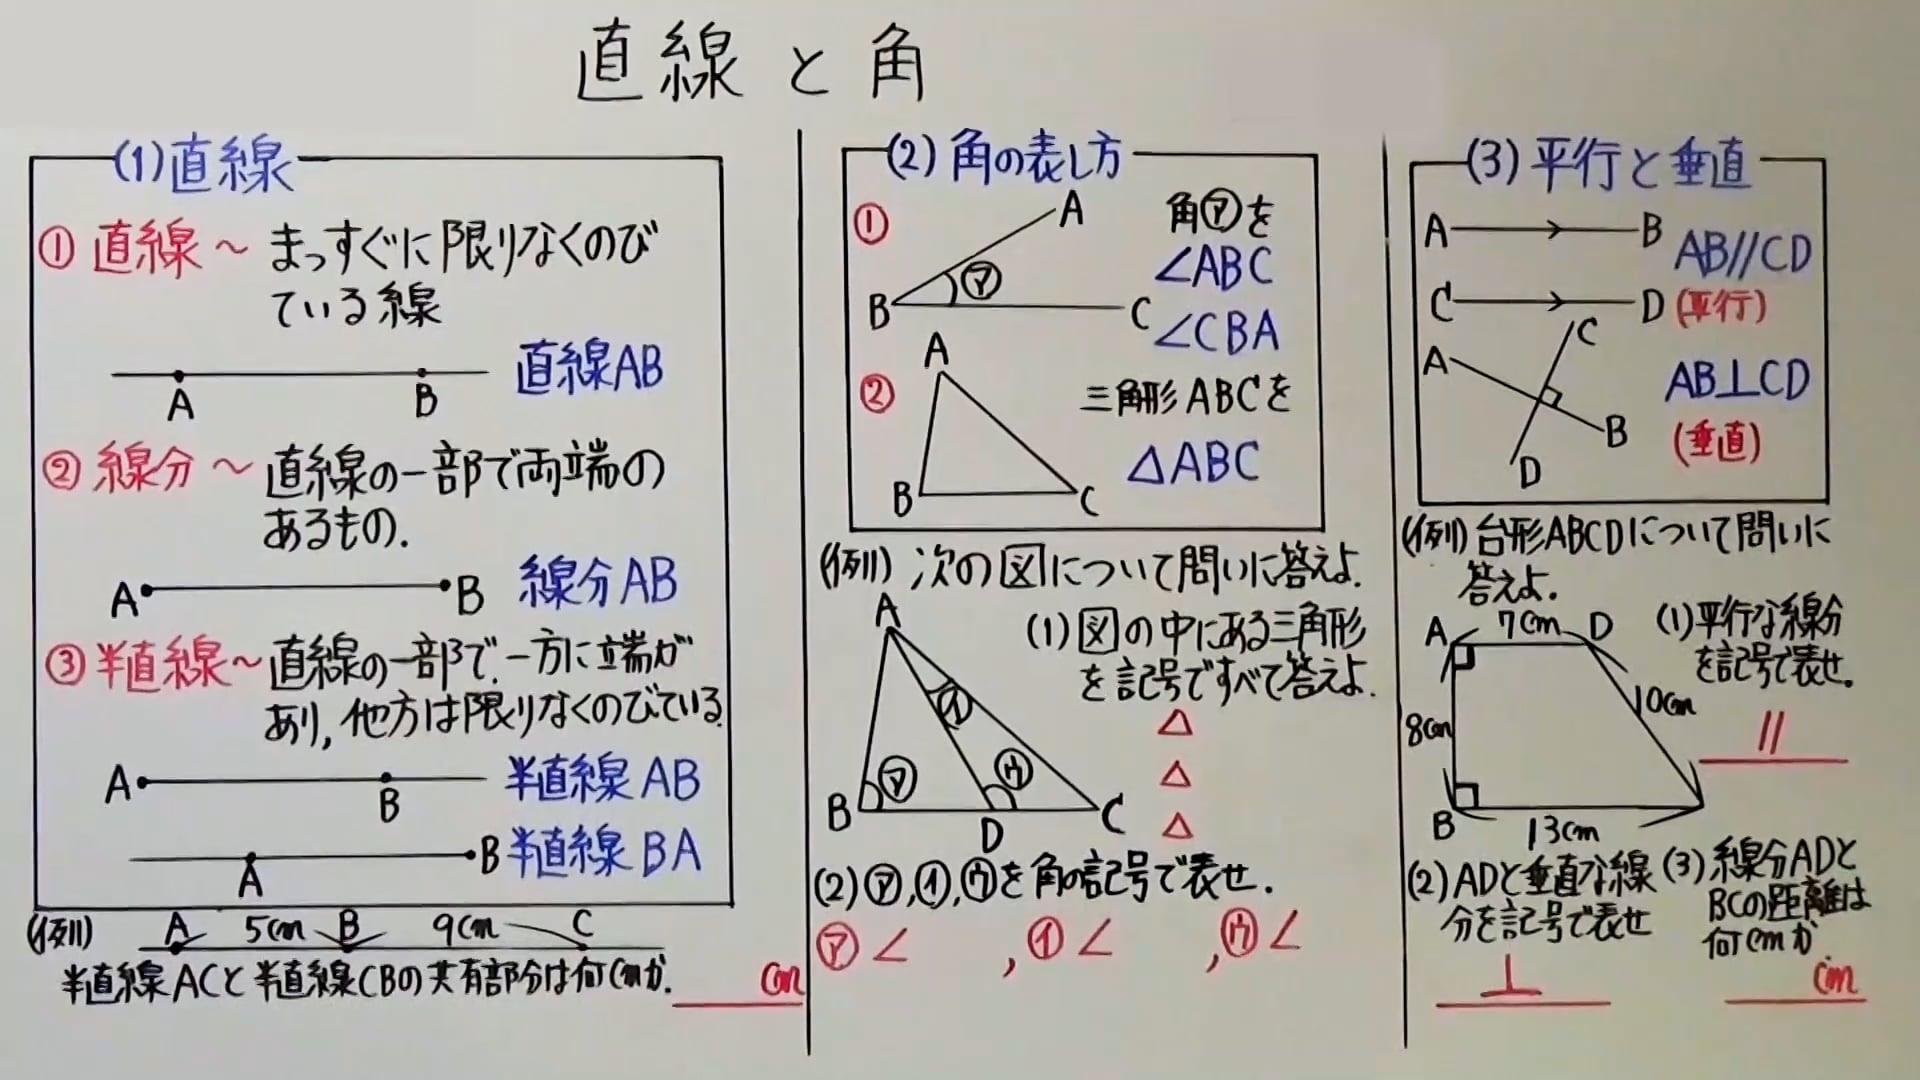 直線と角
(1)直線
① 直線～まっすぐに限りなくのび
ている線
A B 直線AB
② 線分～直線の一部で両端の
あるもの.
A B 線分AB
③ 半直線～直線の一部で、一方に端が
あり, 他方は限りなくのびている.
A B 半直線AB
A B 半直線BA
(例) A 5cm B 9cm C
半直線ACと半直線CBの共有部分は何cmか. cm
(2)角の表し方
① A B C ㋐ 角㋐を
∠ABC
∠CBA
② A B C 三角形ABCを
△ABC
(例) 次の図について問いに答えよ.
A B D C ㋐ ㋑ ㋒
(1)図の中にある三角形
を記号ですべて答えよ.
△
△
△
(2)㋐,㋑,㋒を角の記号で表せ.
㋐∠ ,㋑∠ ,㋒∠
(3)平行と垂直
A B AB//CD
C D (平行)
A B C D AB⊥CD
(垂直)
(例)台形ABCDについて問いに
答えよ.
A 7cm D
8cm 10cm
B 13cm
(1)平行な線分
を記号で表せ.
//
(2)ADと垂直な線
分を記号で表せ
⊥
(3)線分ADと
BCの距離は
何cmか
cm